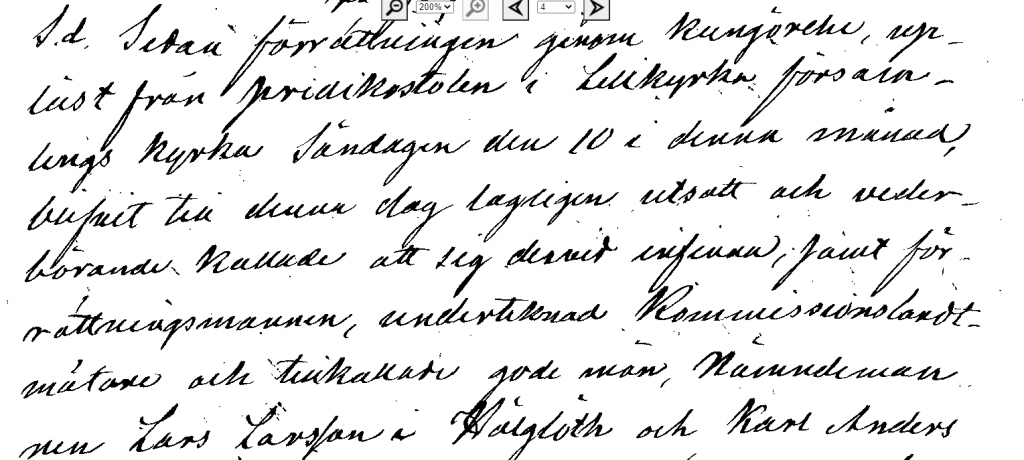 200%
4
S.d. Sedan förrättningen genom kungörelse, upp-
läst från predikostolen i Lillkyrka försam-
lings kyrka Söndagen den 10 i denna månad,
blifvit till denna dag lagligen utsatt och veder-
börande kallade att sig dervid infinna, samt för-
rättningsmannen, undertecknad Kommissionslandt-
mätare och tillkallade gode män, Nämndeman
nen Lars Larsson i och Karl Anders